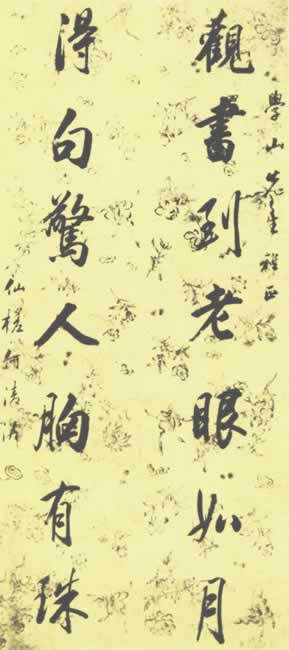 學山先生雅正
觀書到老眼如月
得句驚人胸有珠
仙槎何清